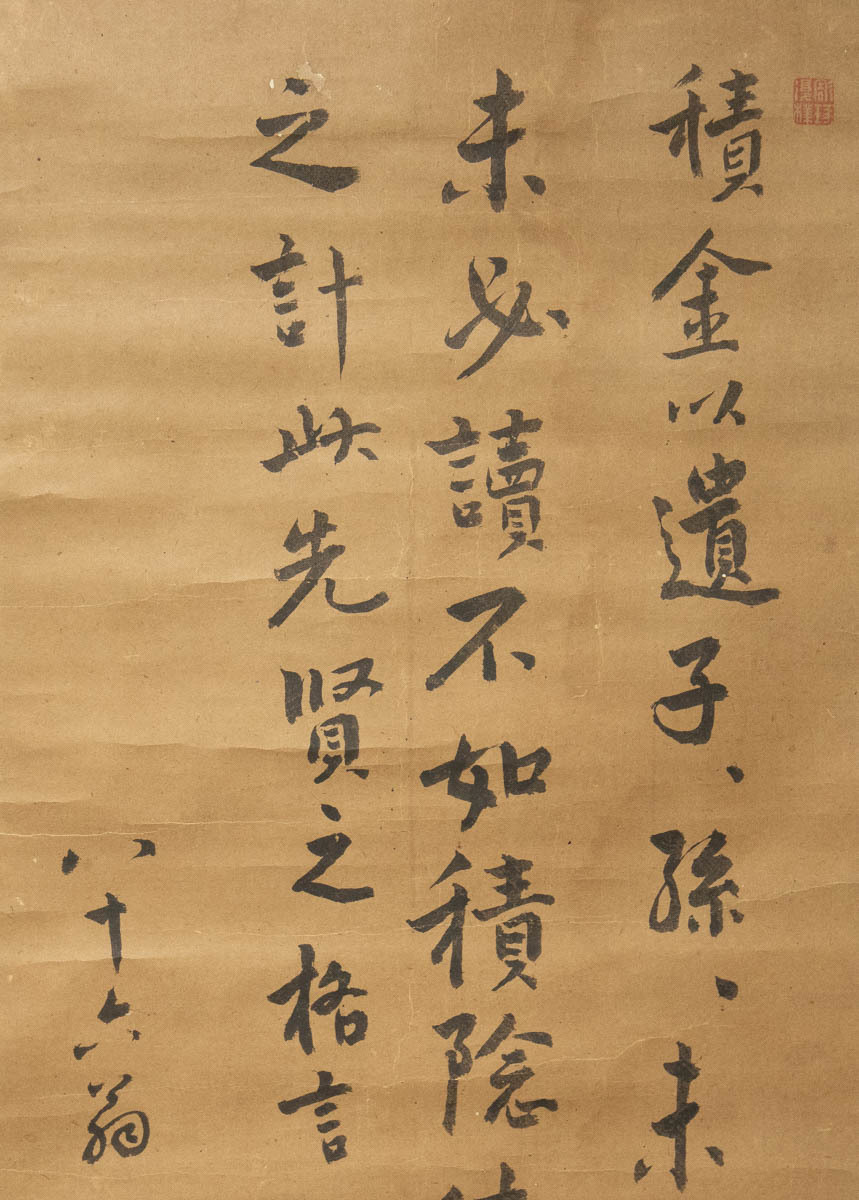 積金以遺子、孫、未
未必讀不如積陰
之計此先賢之格言
八十六翁